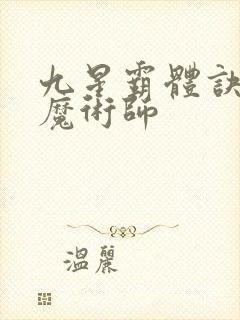 九星霸體訣
魔術師
溫麗